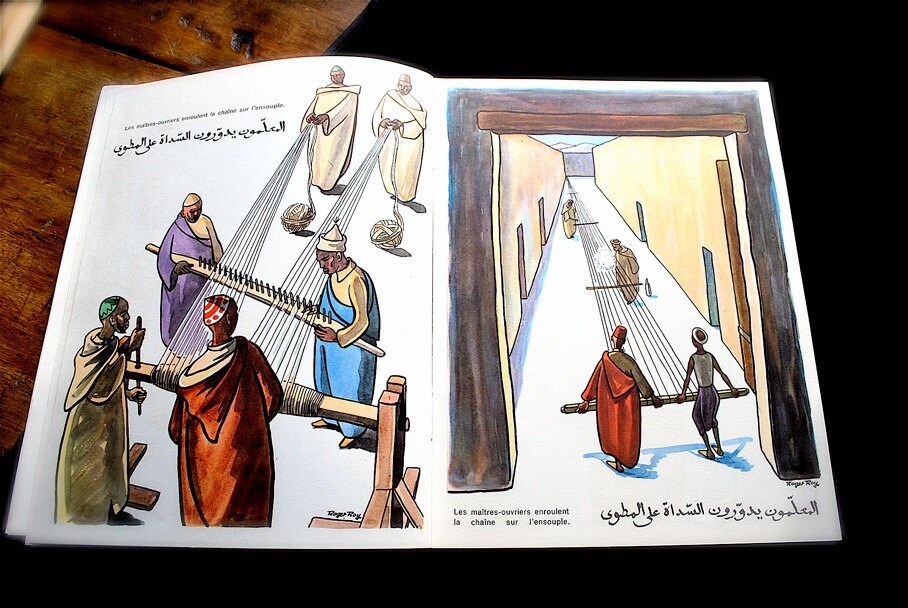 Les maîtres-ouvriers enroulent la chaîne sur l'ensouple.
المعلّمون يدوّرون السّداة على المطوى
Roger Roy
Roger Roy
Les maîtres-ouvriers enroulent
la chaîne sur l'ensouple.
المعلّمون يدوّرون السّداة على المطوى